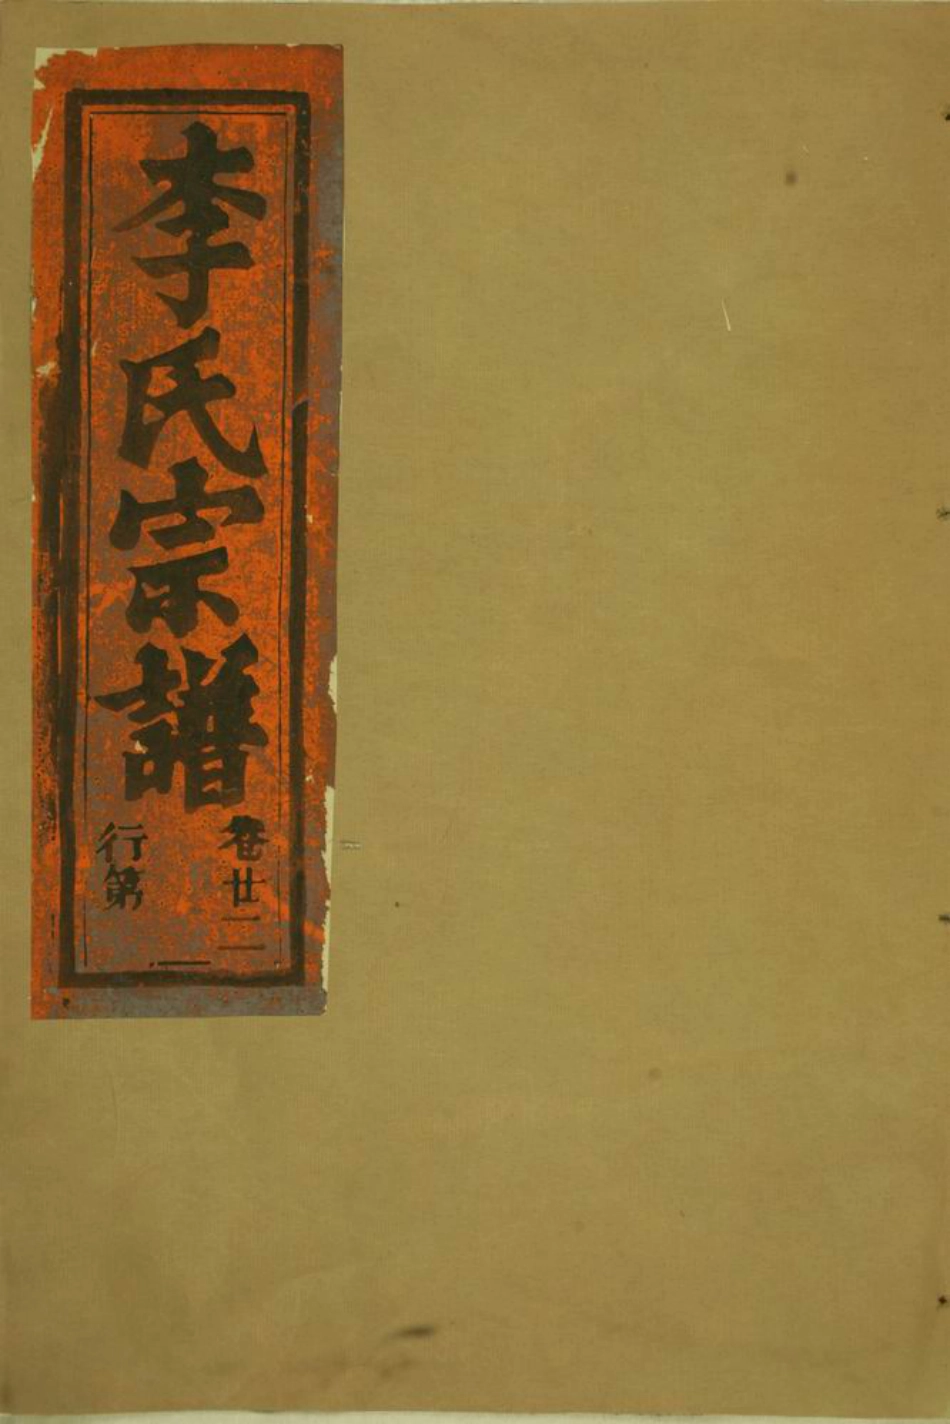 李氏宗譜
卷廿二
行第